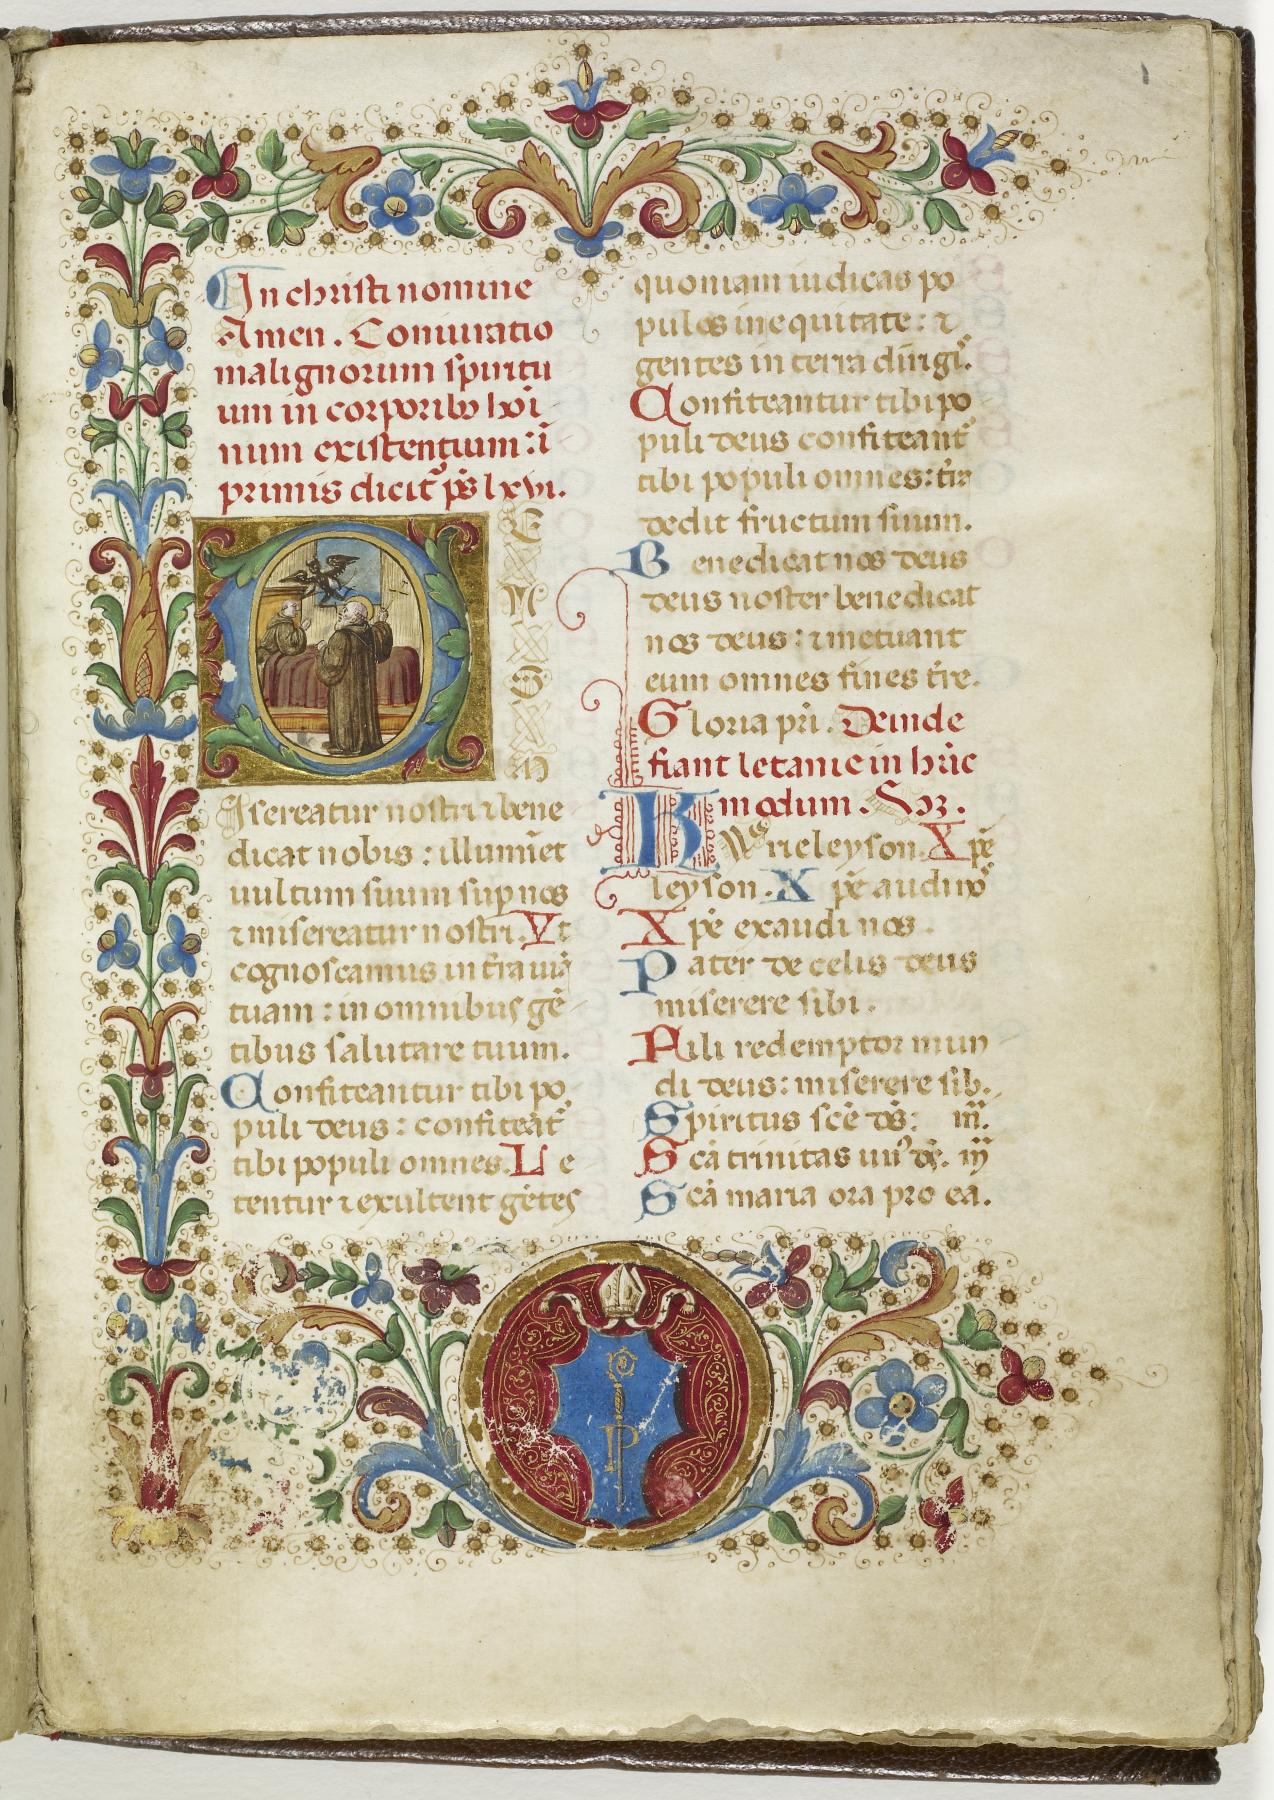 In christi nomine
Amen. Coniuratio
malignorum spiritu
um in corporibꝫ hoı̄
num existentium: ı̄
primis dicit᷑ p̄s lxvi.
D E
N
S
M
Isereatur nostri ⁊ bene
dicat nobis: illumı̄et
uultum suum sup nos
⁊ misereatur nostri. Vt
cognoscamus in t̄ra uiā
tuam: in omnibus gē
tibus salutare tuum.
Confiteantur tibi po
puli deus: confiteāt᷑
tibi populi omnes. Le
tentur ⁊ exultent gētes
quoniam iudicas po
pulos in equitate: ⁊
gentes in terra dirigꝭ.
Confiteantur tibi po
puli deus confiteant᷑
tibi populi omnes: t̄ra
dedit fructum suum.
Benedicat nos deus
deus noster benedicat
nos deus: ⁊ metuant
eum omnes fines t̄re.
Gloria pr̄i. Deinde
fiant letanie in hūc
modum.
Kirieleyson. Xp̄e
leyson. Xp̄e audi noꝰ
Xp̄e exaudi nos.
Pater de celis deus
miserere sibi.
Fili redemptor mun
di deus: miserere sib.
Spiritus sc̄e ds̄: m̄.
Sc̄a trinitas unꝰ ds̄. m̄
Sc̄a maria ora pro ea.
P